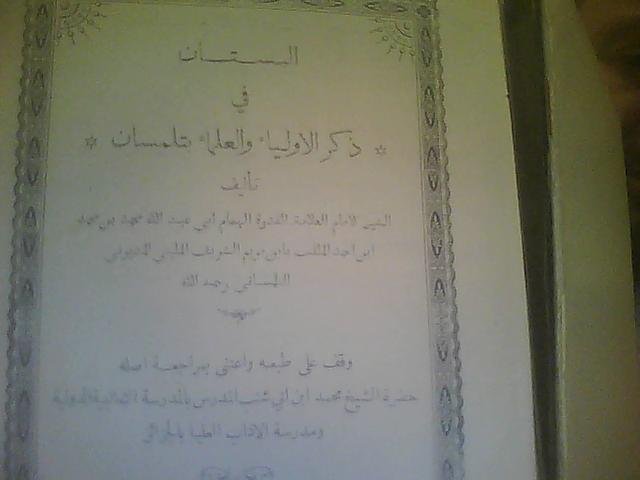 البستان
في
* ذكر الاولياء والعلماء بتلمسان *
تأليف
الشيخ الامام العلامة القدوة الهمام ابي عبد الله محمد بن محمد
ابن احمد الملقب بابن مريم الشريف المليتي المديوني
التلمساني رحمه الله
وقف على طبعه واعتنى بمراجعة اصله
حضرة الشيخ محمد ابن ابي شنب المدرس بالمدرسة الثعالبية الدولية
ومدرسة الاداب العليا بالجزائر